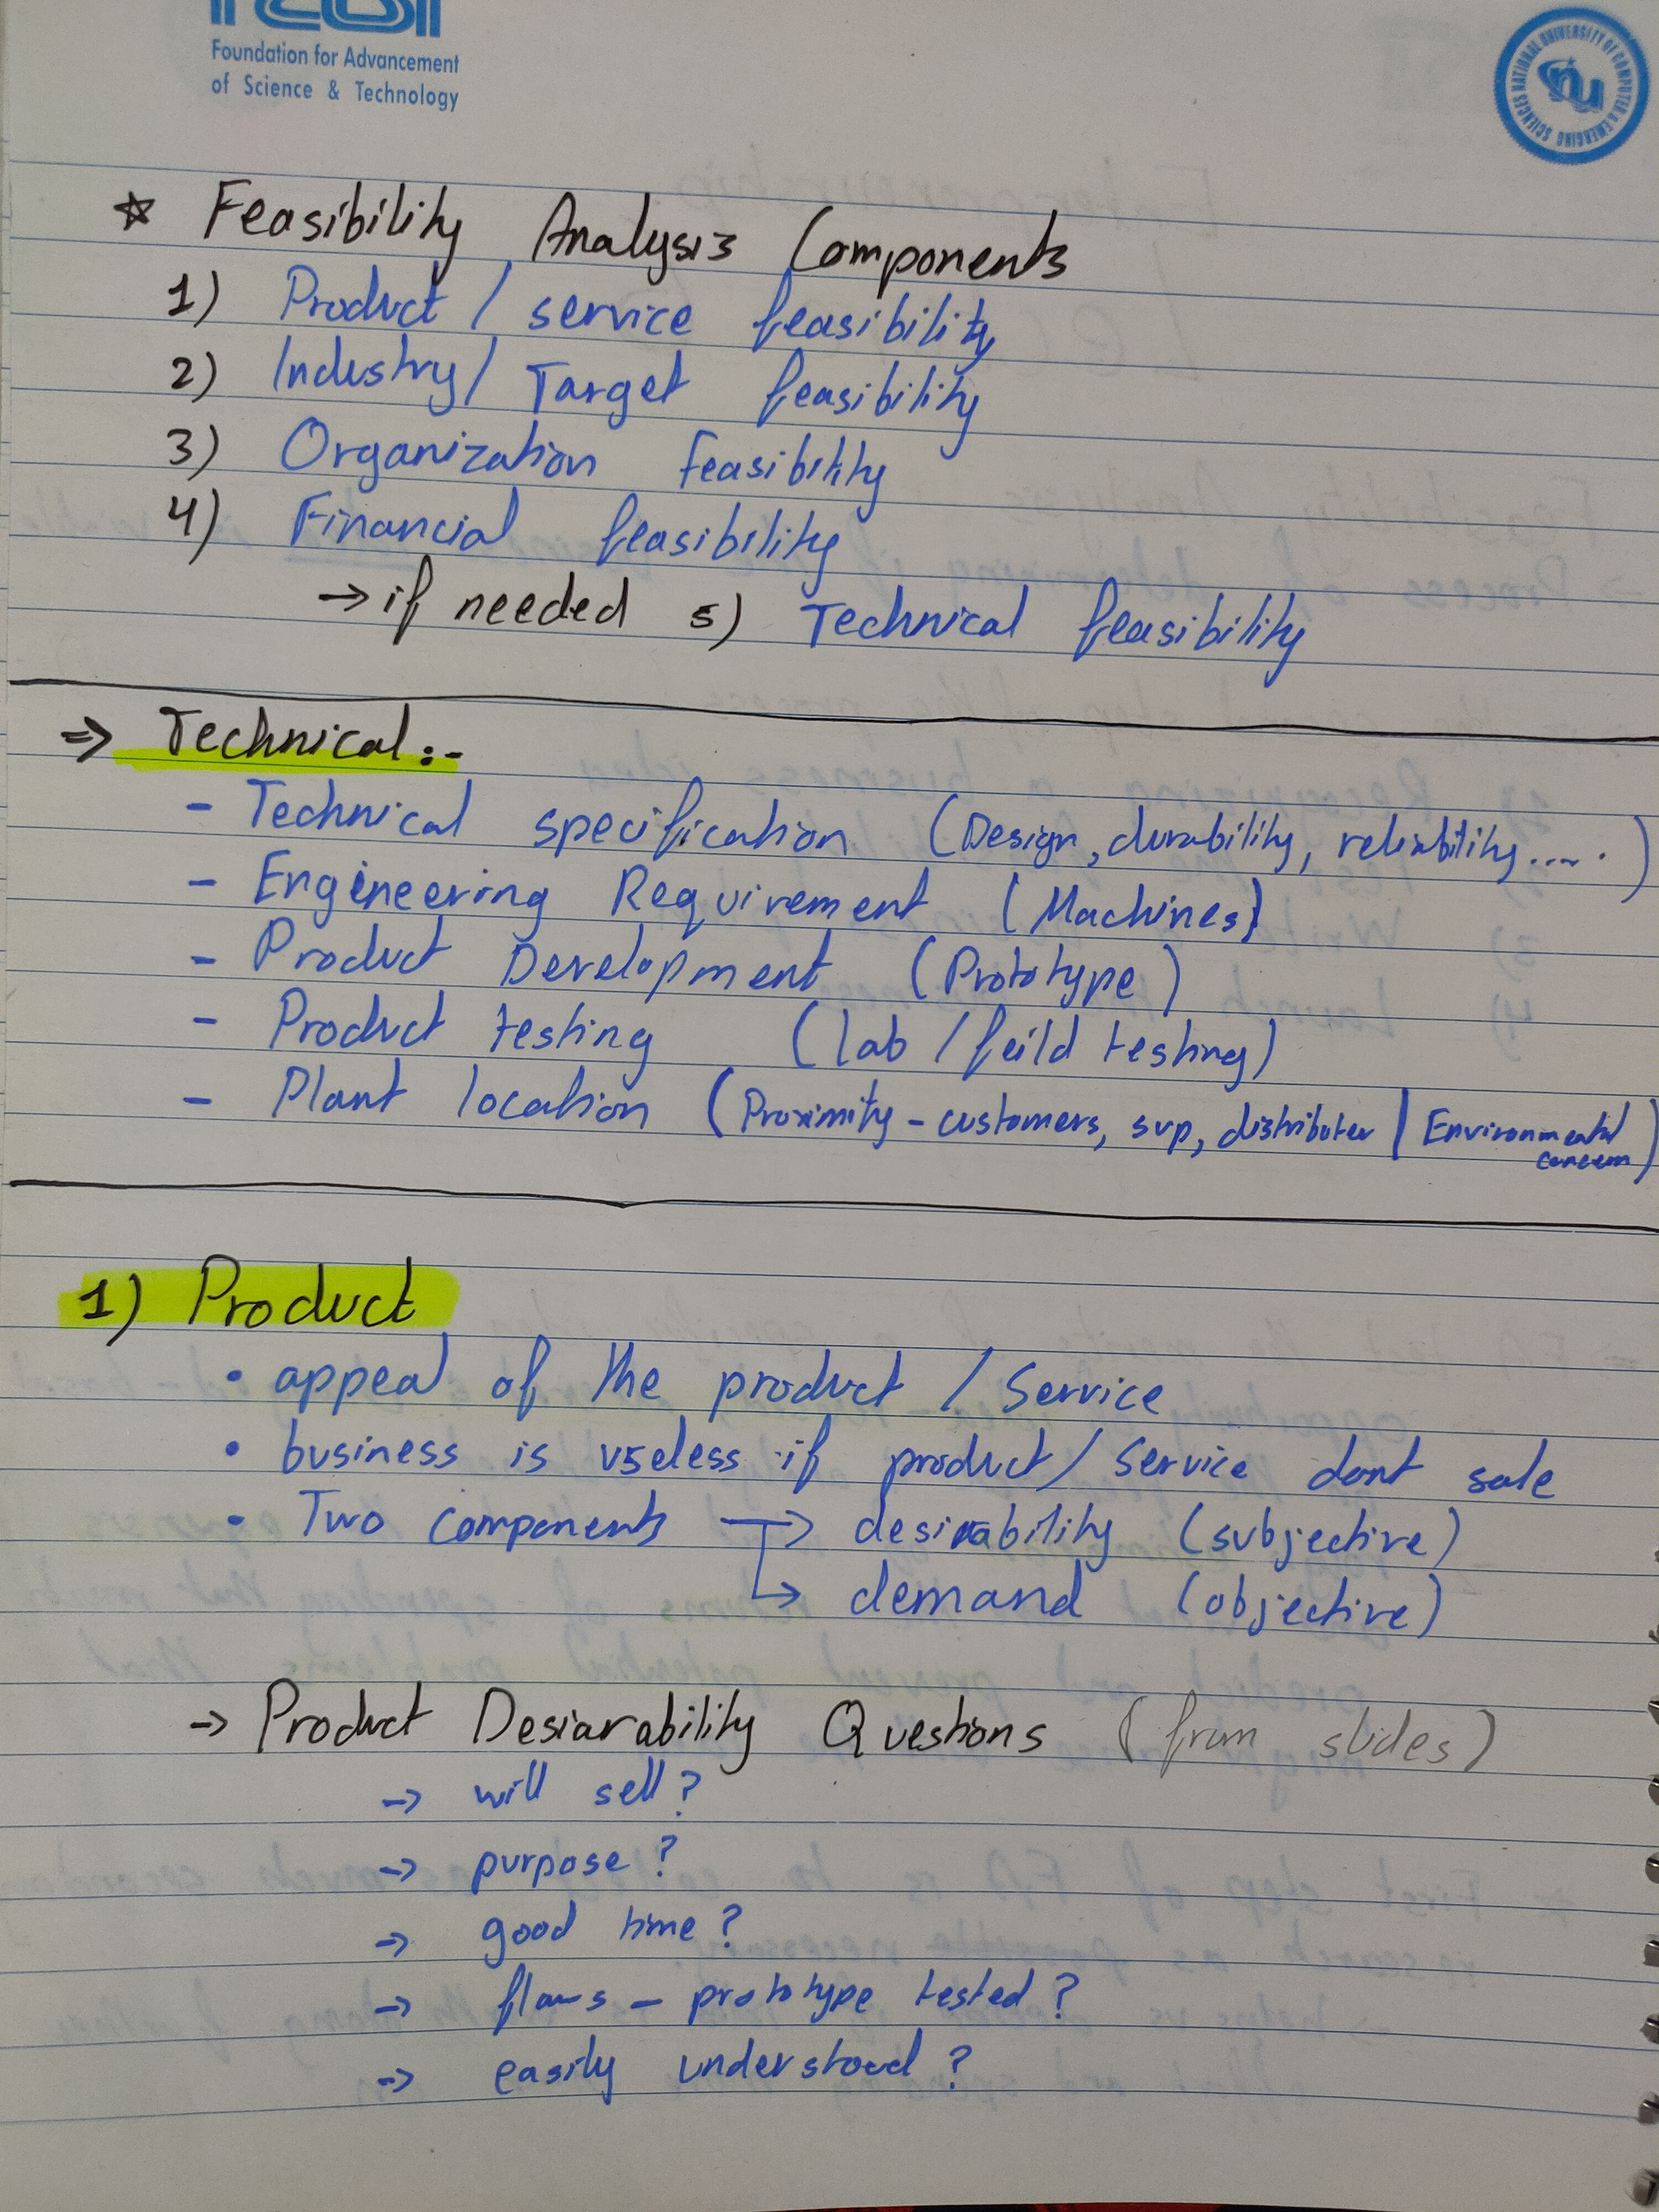 Foundation for Advancement
of Science & Technology
NATIONAL UNIVERSITY OF COMPUTER & EMERGING SCIENCES
nu
☆ Feasibility Analysis Components
1) Product / service feasibility
2) Industry / Target feasibility
3) Organization feasibility
4) Financial feasibility
→ if needed 5) Technical feasibility
⇒ Technical :-
- Technical specification (Design, durability, reliability..... )
- Engineering Requirement (Machines)
- Product Development (Prototype)
- Product testing (lab / feild testing)
- Plant location (Proximity - customers, sup, distributer | Environmental
concern)
1) Product
• appeal of the product / Service
• business is useless if product / Service dont sale
• Two components → desirability (subjective)
↳ demand (objective)
→ Product Desiarability Questions (from slides)
→ will sell?
→ purpose?
→ good time?
→ flaws - prototype tested?
→ easily understood?